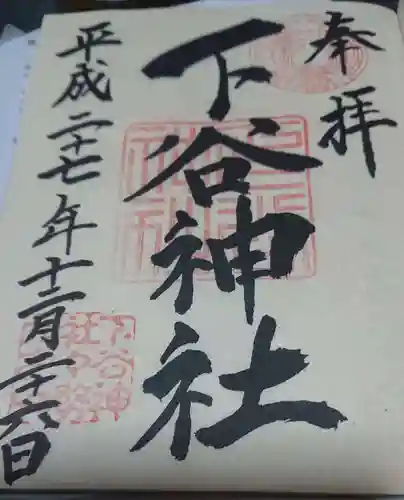 奉拝
下谷神社
平成二十七年十二月二十六日
下谷神社